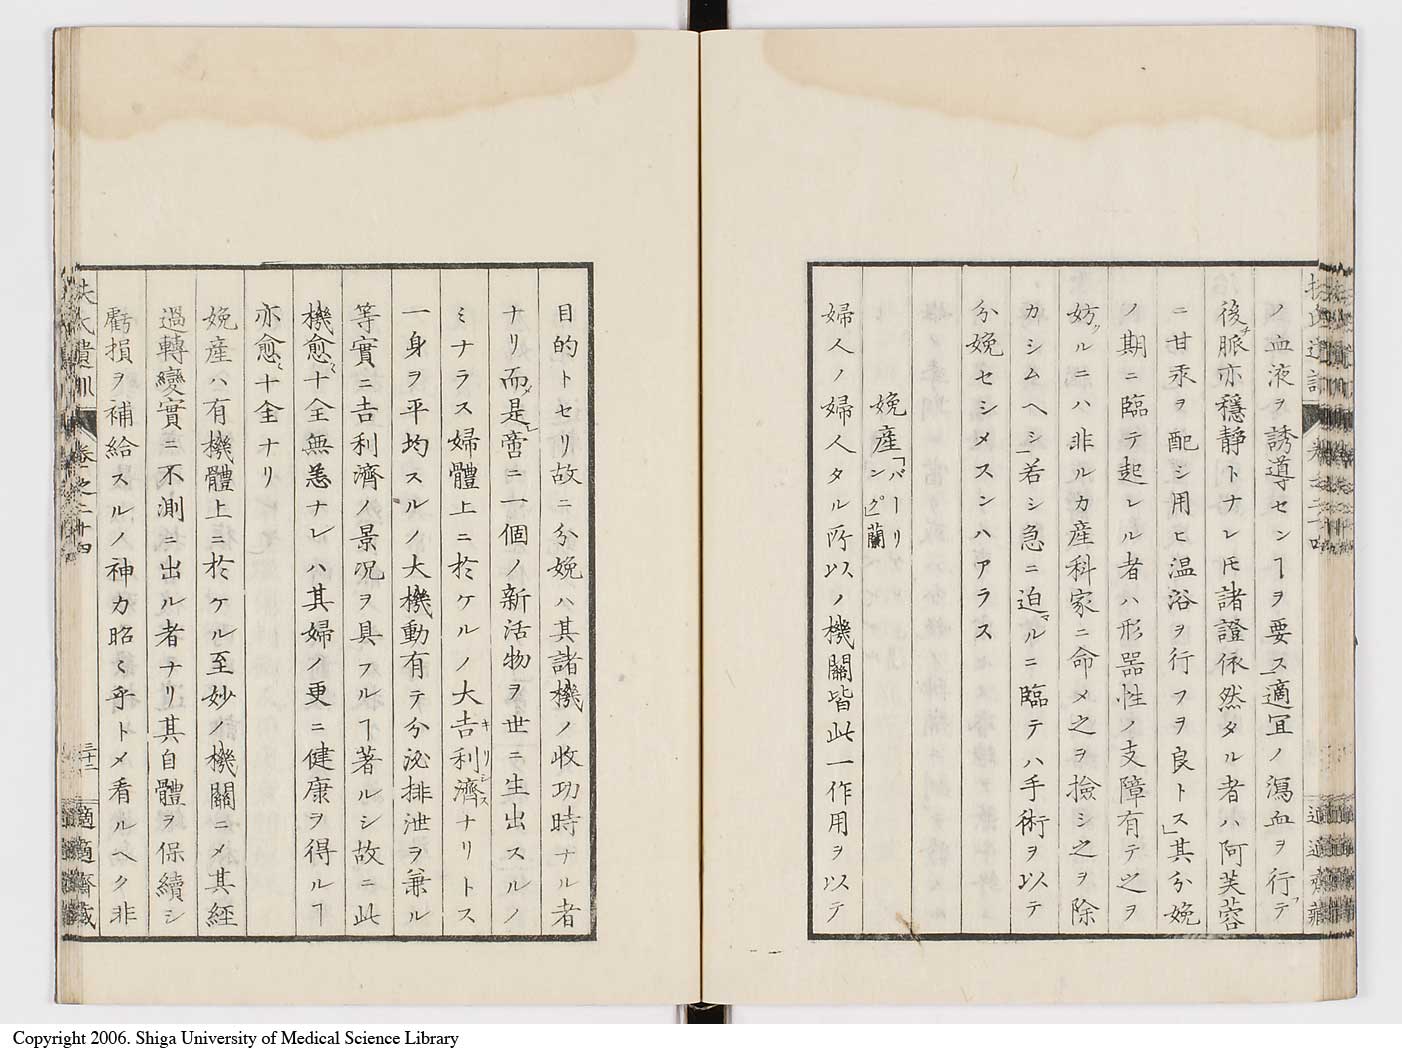 ノ血液ヲ誘導センヿヲ要ス」適宜ノ瀉血ヲ行テ
後脈亦穩靜トナレ𪜈諸證依然タル者ハ阿芙蓉
ニ甘汞ヲ配シ用ヒ温浴ヲ行フヲ良トス」其分娩
ノ期ニ臨テ起レル者ハ形器性ノ支障有テ之ヲ
妨ルニハ非ルカ産科家ニ命メ之ヲ撿シ之ヲ除
カシムヘシ」若シ急ニ迫ルニ臨テハ手術ヲ以テ
分娩セシメスンハアラス
娩産「バーリング」蘭
婦人ノ婦人タル所以ノ機關皆此一作用ヲ以テ
目的トセリ故ニ分娩ハ其諸機ノ收功時ナル者
ナリ而是啻ニ一個ノ新活物ヲ世ニ生出スルノ
ミナラス婦體上ニ於ケルノ大吉利濟キリシスナリトス
一身ヲ平均スルノ大機動有テ分泌排泄ヲ兼ル
等實ニ吉利濟ノ景况ヲ具フルヿ著ルシ故ニ此
機愈〻十全無恙ナレハ其婦ノ更ニ健康ヲ得ルヿ
亦愈〻十全ナリ
娩産ハ有機體上ニ於ケル至妙ノ機關ニメ其經
過轉變實ニ不測ニ出ル者ナリ其自體ヲ保續シ
虧損ヲ補給スルノ神力昭〻乎トメ看ルヘク非
扶氏遺訓 卷之二十四 三十二 適適齋藏
Copyright 2006. Shiga University of Medical Science Library